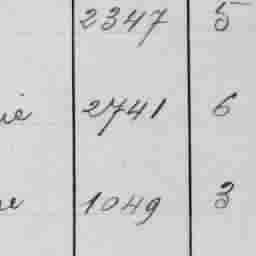 2347 5
2741 6
1049 3